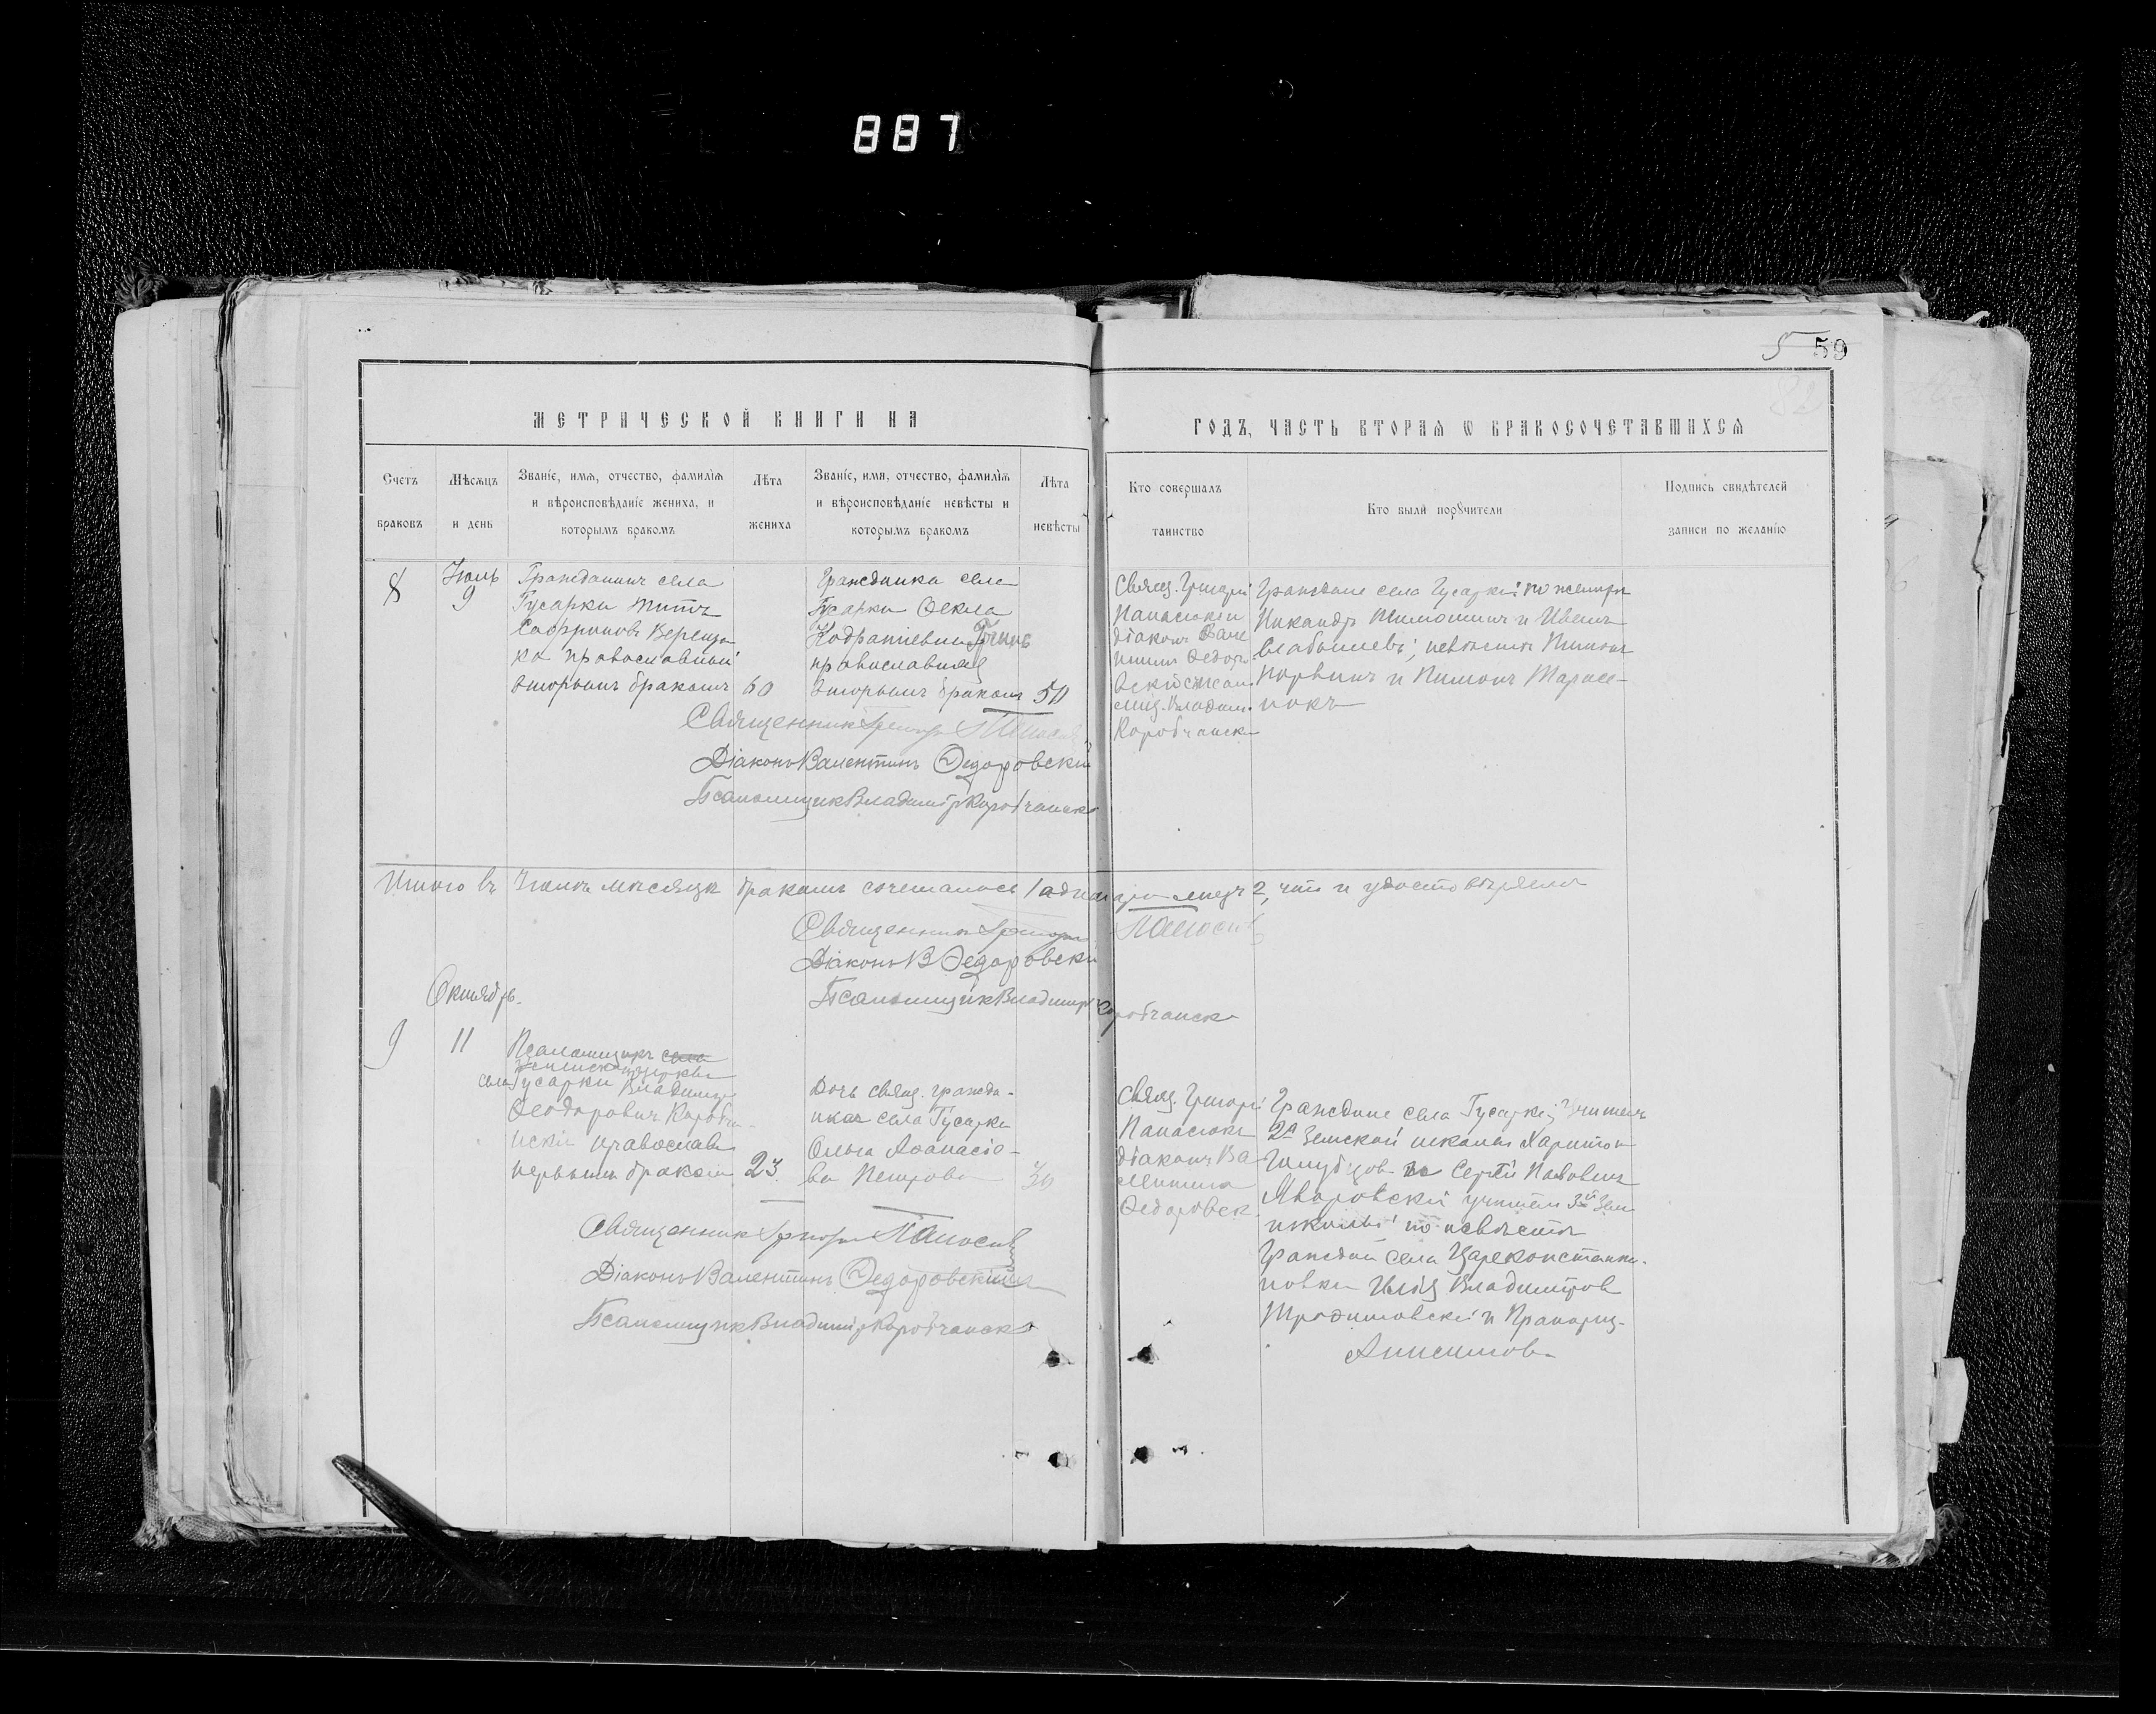 887
5 59
82
МЕТРИЧЕСКОЙ КНИГИ НА
ГОДЪ, ЧАСТЬ ВТОРАѦ Ѡ БРАКОСОЧЕТАВШИХСѦ
Счетъ
браковъ
Мѣсѧцъ
и день
Званіе, имѧ, отчество, фамиліѧ
и вѣроисповѣданіе жениха, и
которымъ бракомъ
Лѣта
жениха
Званіе, имѧ, отчество, фамиліѧ
и вѣроисповѣданіе невѣсты и
которымъ бракомъ
Лѣта
невѣсты
Кто совершалъ
таинство
Кто были порꙋчители
Подпись свидѣтелей
записи по желанію
8
Іюль
9
Гражданинъ села
Гусарки Титъ
Верещa-
ка православный
вторымъ бракомъ
60
Гражданка села
Гусарки Ѳекла
православная
вторымъ бракомъ
50
Свящ. Григорій
Панасюк и
діаконъ Вале
нтинъ Ѳедоро
вскій
Владим.
Коробчанск
Граждане села Гусарки: по женихѣ
Никандръ и Иванъ
невѣстѣ
и Тарасе-
нокъ
Священник Григорій Панасюк
Діаконъ Валентинъ Ѳедоровскій
Псаломщик Владимір Коробчанск
Итого въ Іюлѣ мѣсяцѣ бракомъ сочеталось 1 одна пара лицъ 2, что и удостовѣряемъ
Священник Григорій Панасюк
Діаконъ В Ѳедоровскій
Псаломщик Владимір Коробчанск
Октябрь
9
11
Псаломщикъ села
церкви
села Гусарки Владимір
Ѳеодорович Коробча-
нскій православ
первымъ бракомъ
23.
Дочь свящ. гражда-
нка села Гусарки
Ольга Аѳанасіе-
ва Петрова
30
Свящ. Григорій
Панасюк
діаконъ Ва-
лентинъ
Ѳедоровск
Граждане села Гусарки; Учитель
2й Земской школы Харитон
Голубцов Сергѣй Павлович
Яворовскій учитель 3й Зем
школы; по невѣстѣ
Гражданин села Цареконстанти-
новки Илія Владиміров
и Прапорщ-
Анисимов
Священник Григорій Панасюк
Діаконъ Валентинъ Ѳедоровскій
Псаломщик Владимір Коробчанск